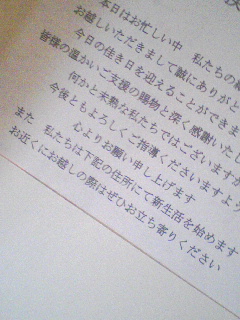 本日はお忙しい中 私たちの
お越しいただきまして誠にありがと
今日の佳き日を迎えることができま
皆様の温かいご支援の賜物と深く感謝いたし
何かと未熟な私たちではございますが
今後ともよろしくご指導くださいますよう
心よりお願い申し上げます
また 私たちは下記の住所にて新生活を始めます
お近くにお越しの際はぜひお立ち寄りください